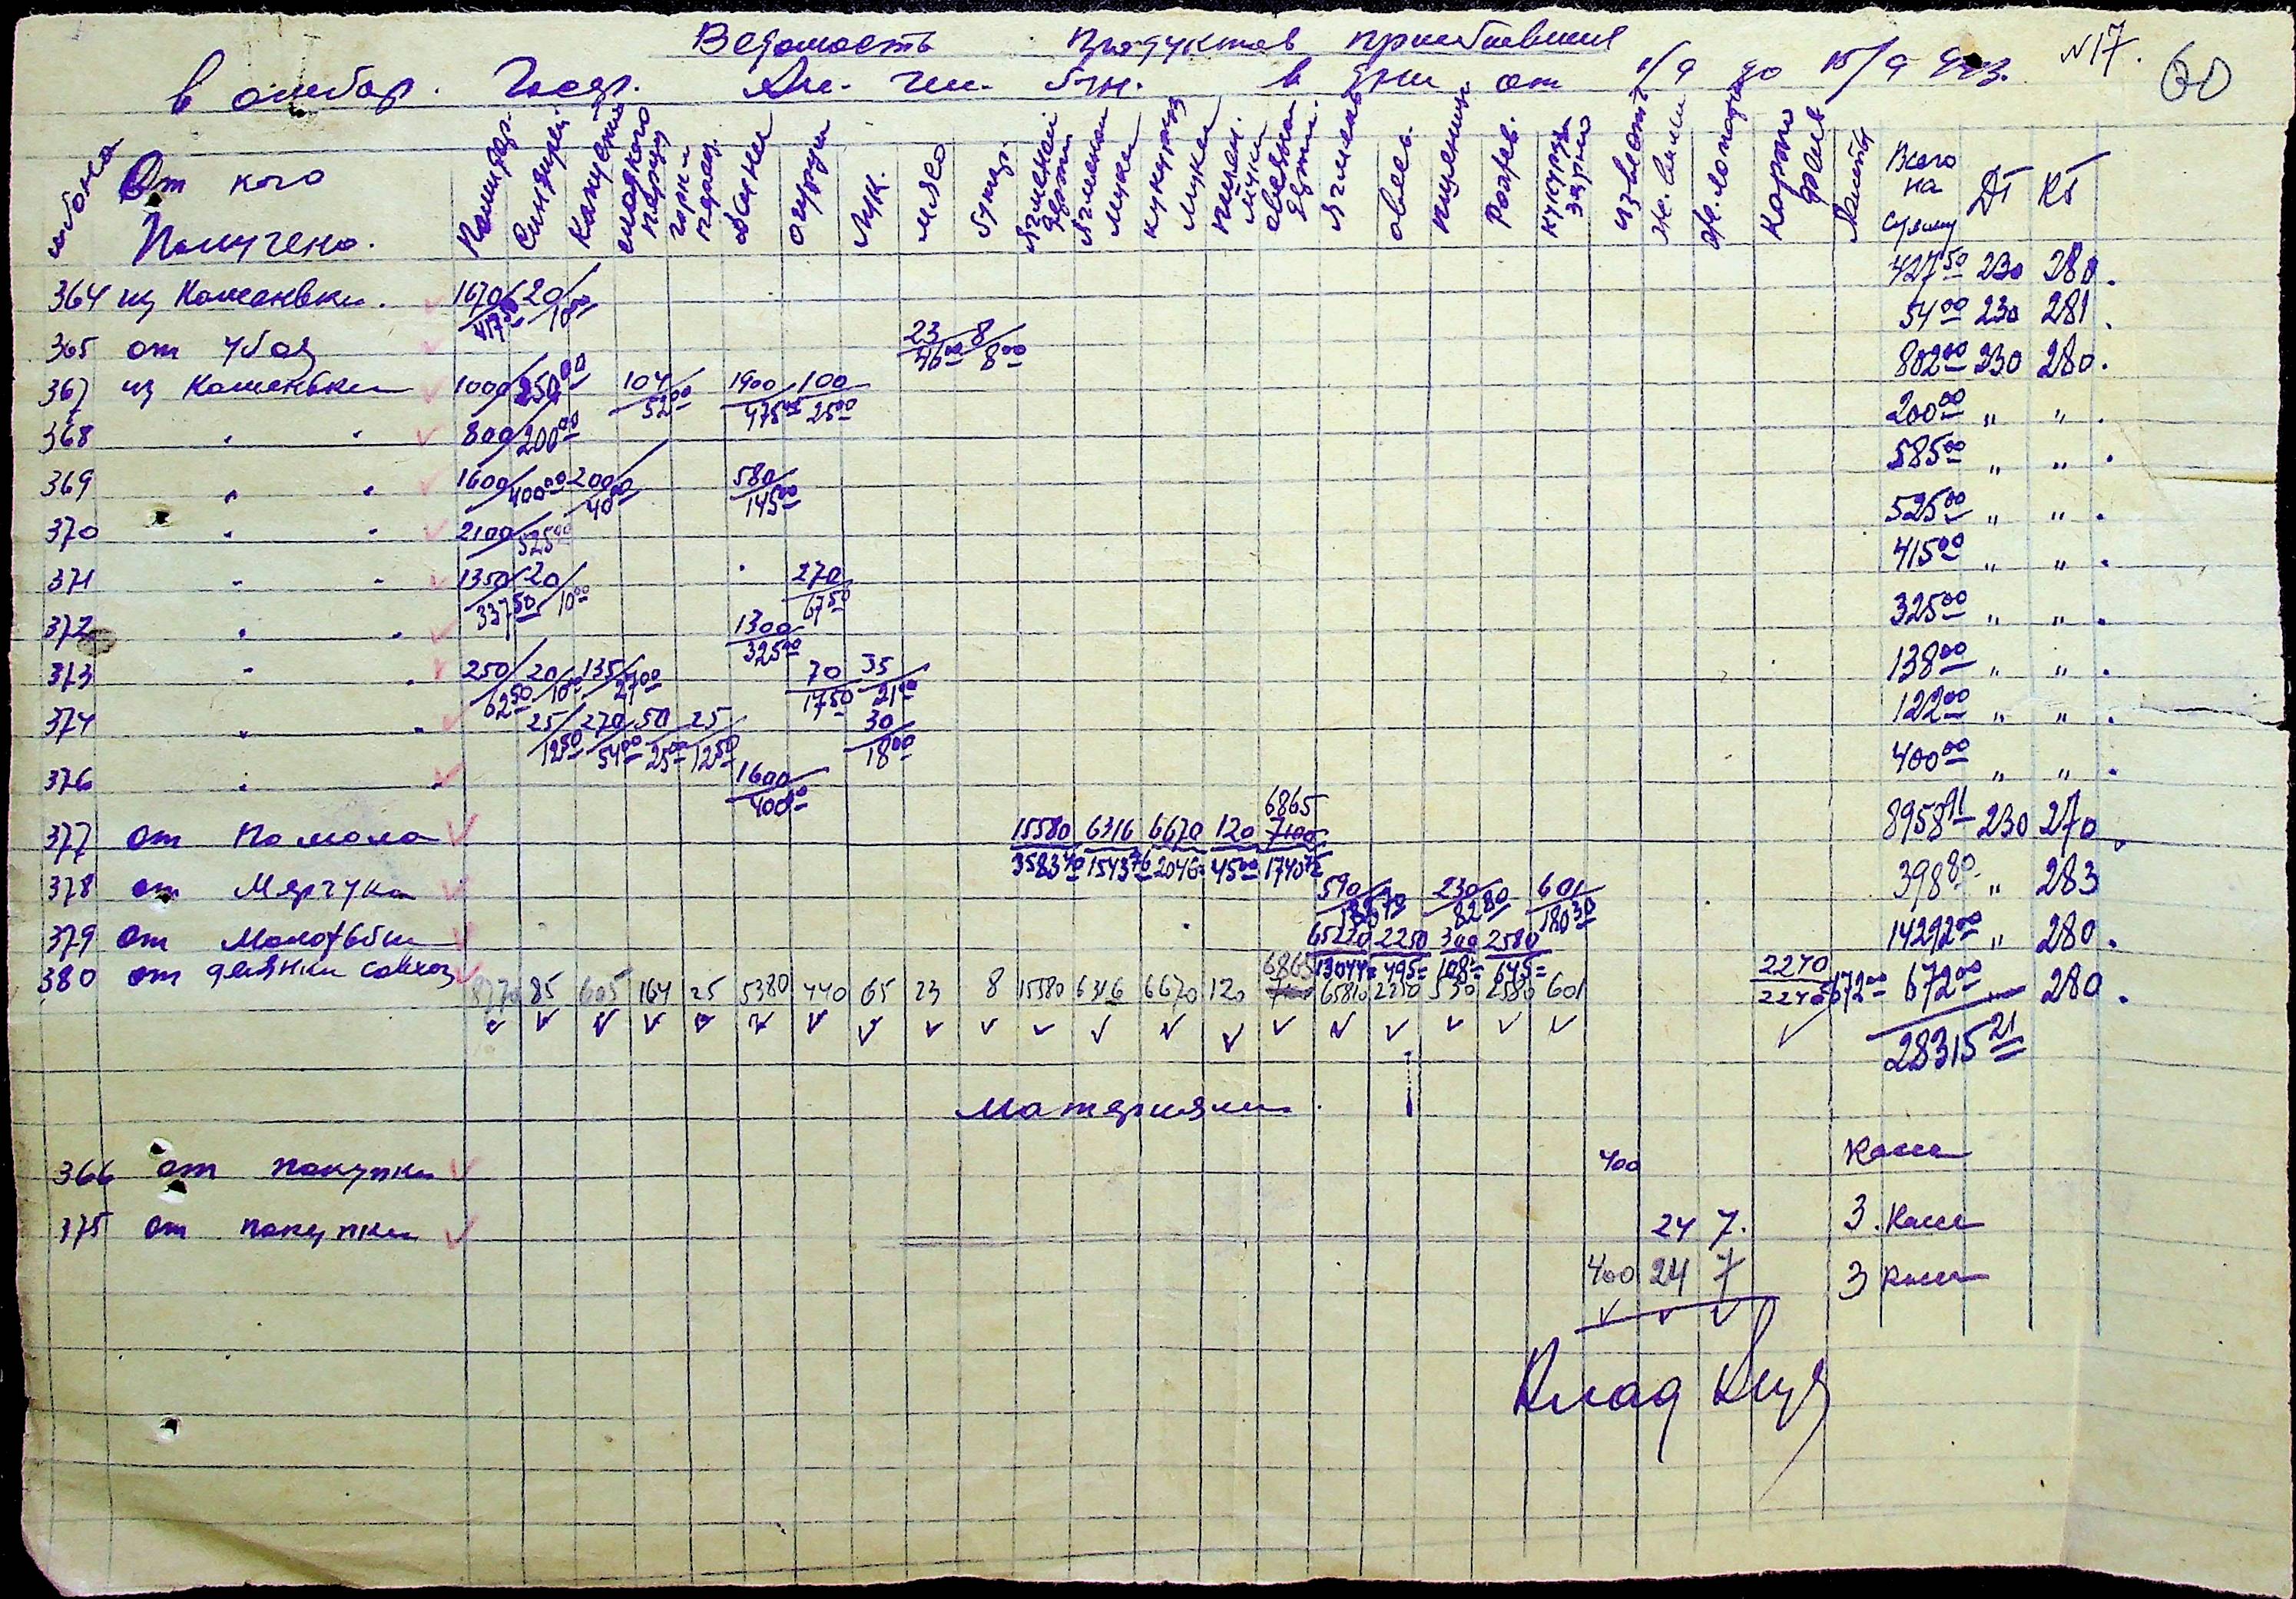 Ведомость продуктов прибывших №17. 60
в амбар. Госп. от 1/9 до 15/9 943.
От кого Получено.
Помидор. Синярей Капусты сладкого перцу горьк перец Дыни огурци Лук. мясо
Ячменной дерти Ячменной муки кукуруз муки пшен. муки овсяной дерти Ячмень овес. пшеницы кукуруза зерно
Картофеля Всего на сумму ДТ КТ
364 из Каменьки. 1670/417 50 20/10 00 427 50 230 280.
365 от убоя 23/46 00 8/8 00 54 00 230 281.
367 из Каменьки 1000/250 00 104/52 00 1900/475 00 100/25 00 802 00 230 280.
368 " " 800/200 00 200 00 " " .
369 " " 1600/400 00 200/40 00 580/145 00 585 00 " " .
370 " " 2100/525 00 525 00 " " .
371 " " 1350/337 50 20/10 00 270/67 50 415 00 " " .
372 " " 1300/325 00 325 00 " " .
373 " " 250/62 50 20/10 00 135/27 00 70/17 50 35/21 00 138 00 " " .
374 " " 25/12 50 270/54 00 50/25 00 25/12 50 30/18 00 122 00 " " .
376 " " 1600/400 00 400 00 " " .
377 от Помола 15580/3583 40 6316/1543 76 6670/2046= 120/45 00 6865 7100/1740 75 8958 91 230 270.
378 от 590/135 70 230/82 80 601/180 30 398 80 " 283
379 от Молотьбы 65220/13044= 2250/495= 300/108= 2580/645= 14292 00 " 280.
380 от делянки совхоз 2240 672 00 672 00 280.
8770 85 605 164 25 5380 440 65 23 8 15580 6316 6670 120 6865 65810 2250 530 2580 601 2240
28315 21
материялы.
366 от покупки 400 Камы
375 от покупки 24 7. 3. Камы
400 24 7 3 Камы
Клад